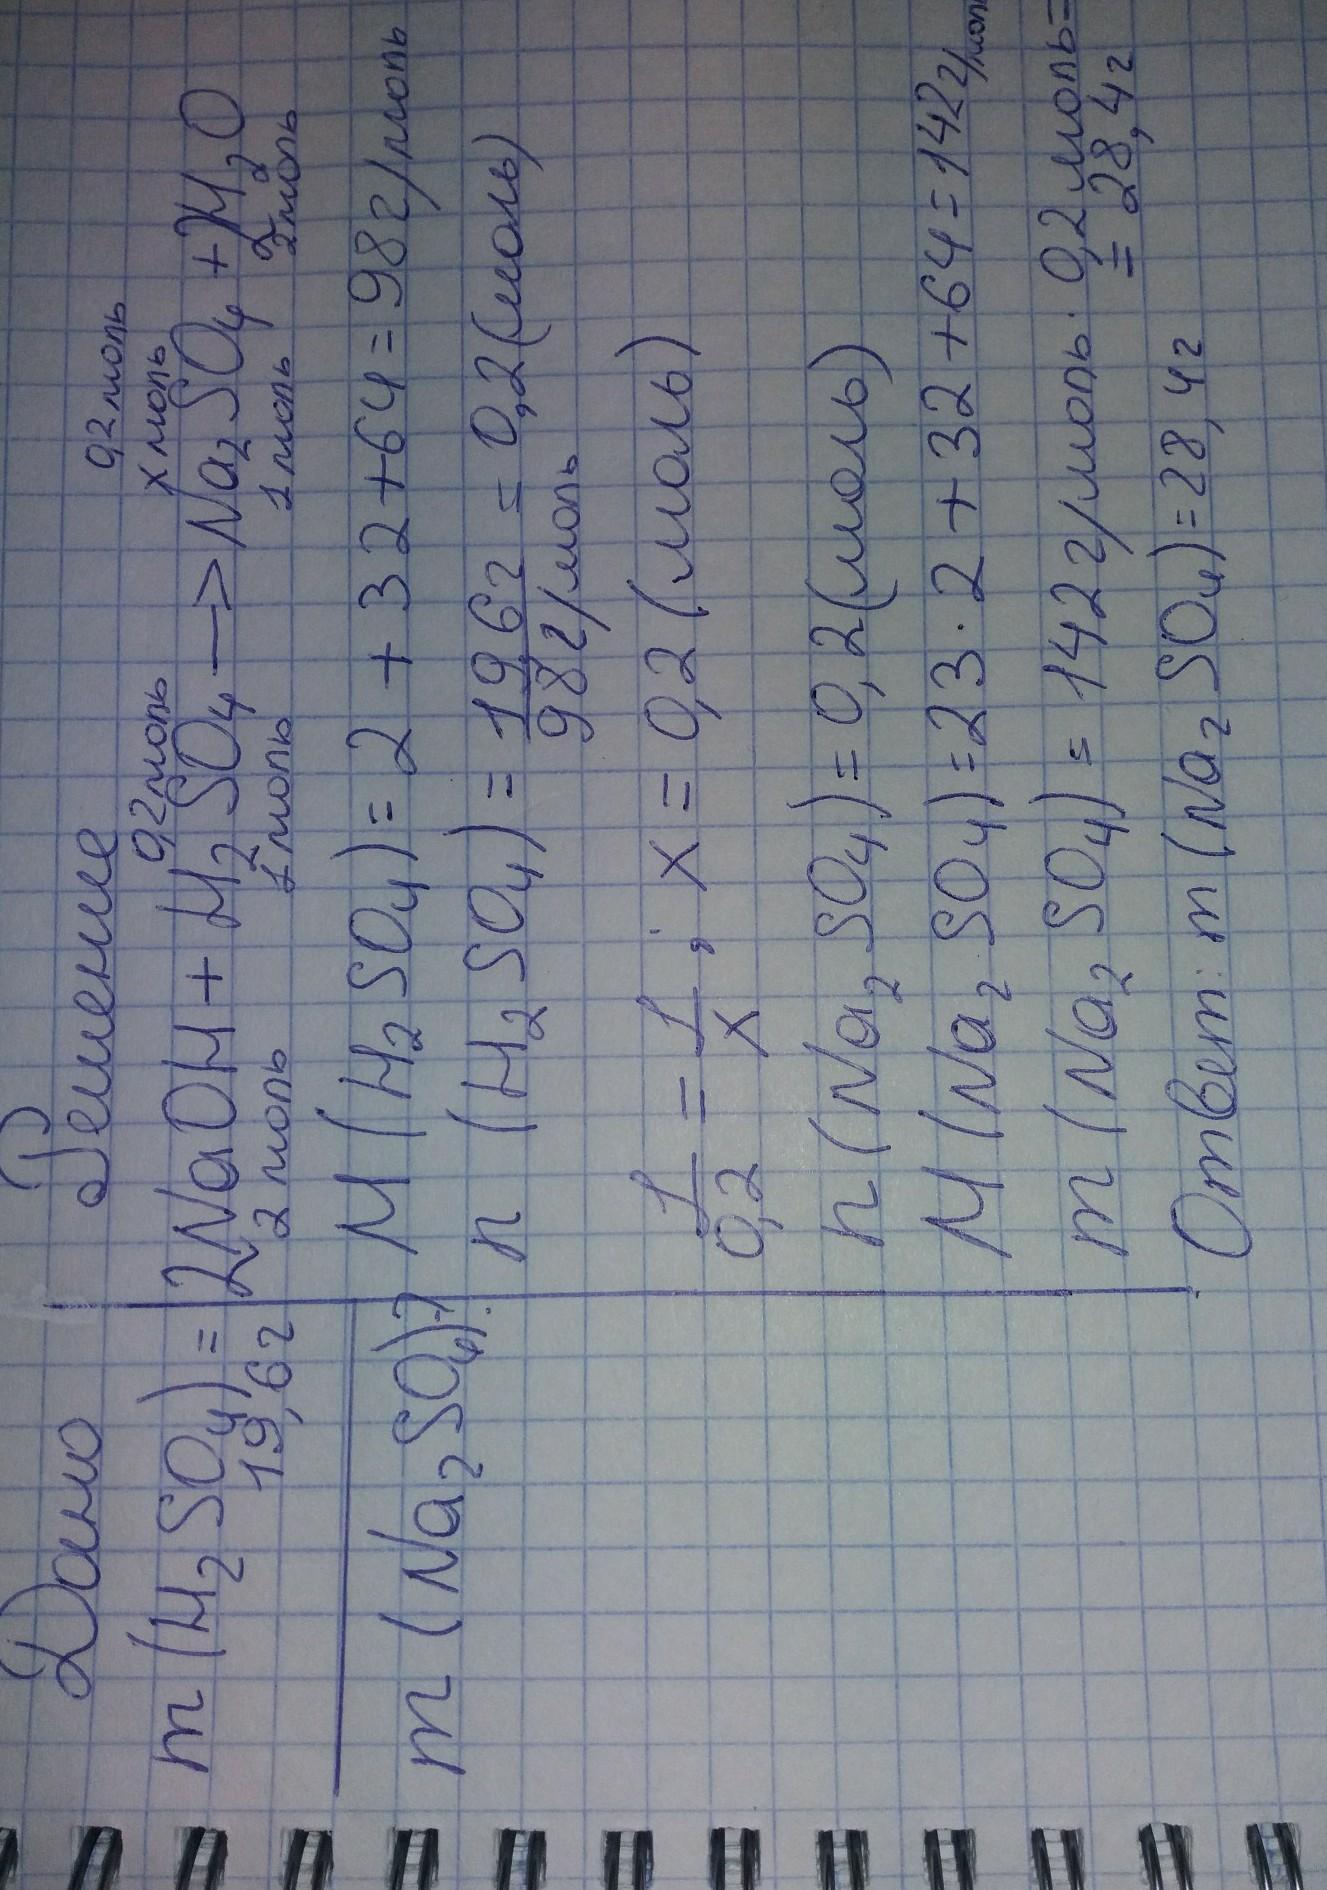 Дано
m(H₂SO₄)=
19,6г
m(Na₂SO₄)-?
Решение
0,2моль
0,2моль xмоль
2NaOH+H₂SO₄→Na₂SO₄+2H₂O
2моль 1моль 1моль 2моль
M(H₂SO₄)=2+32+64=98г/моль
n(H₂SO₄)=19,6г/98г/моль=0,2(моль)
1/0,2=1/x; x=0,2(моль)
n(Na₂SO₄)=0,2(моль)
M(Na₂SO₄)=23·2+32+64=142г/моль
m(Na₂SO₄)=142г/моль·0,2моль=
=28,4г
Ответ: m(Na₂SO₄)=28,4г